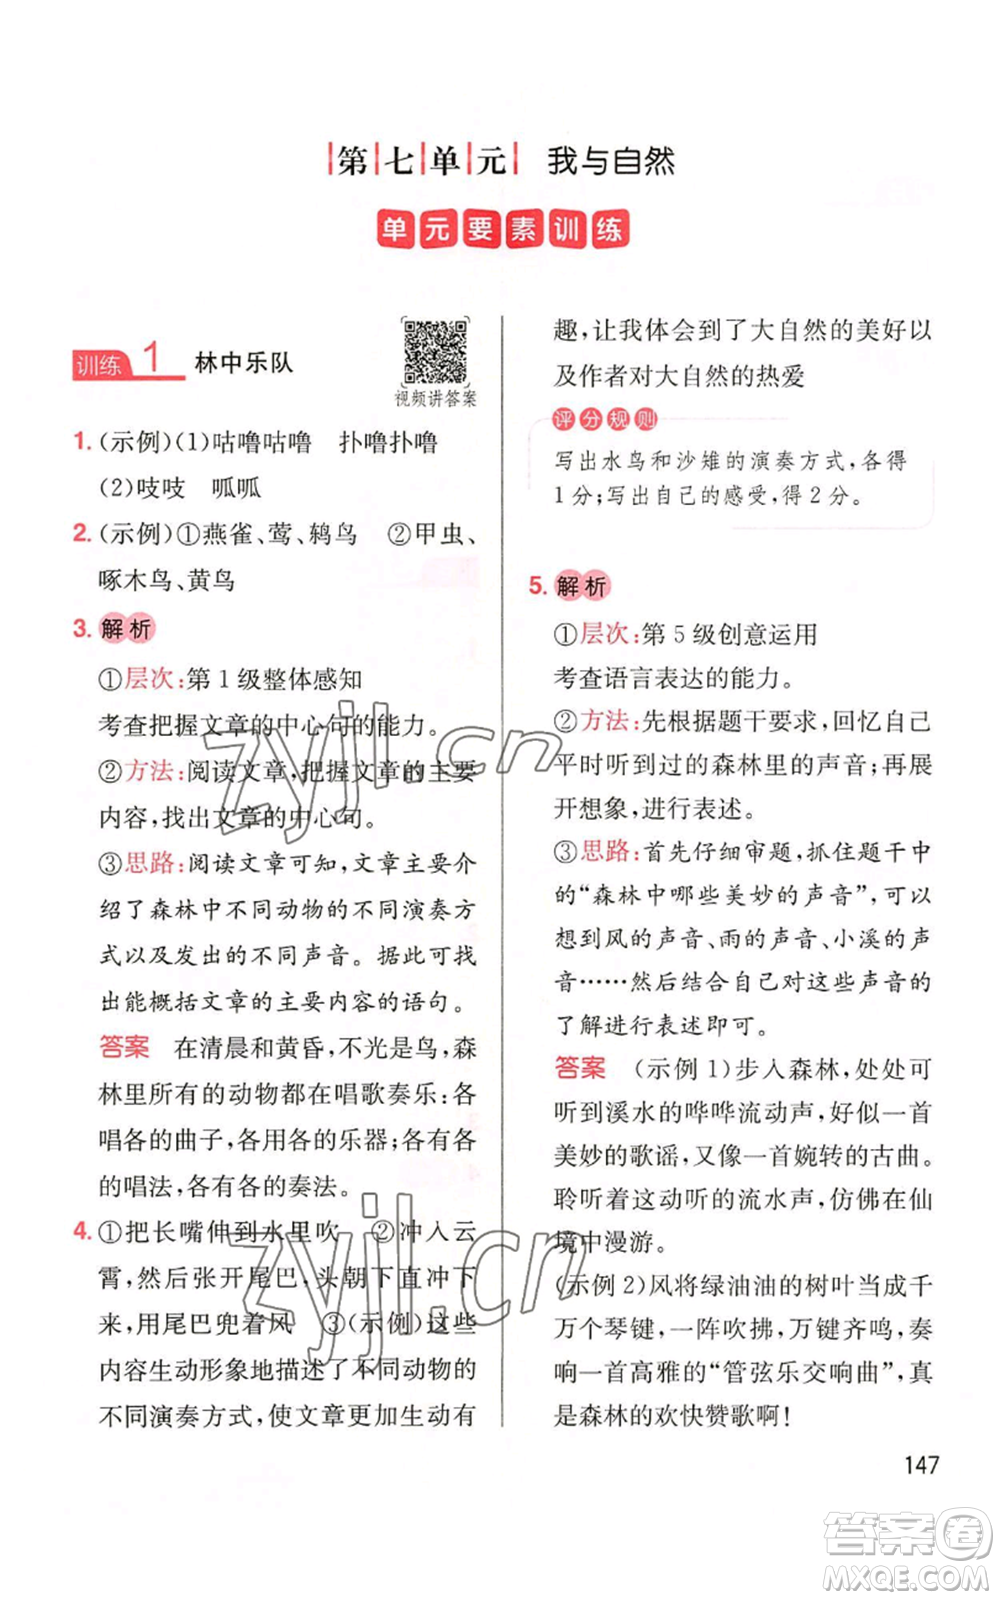 第七单元 我与自然
单元要素训练
训练 1 林中乐队
视频讲答案
1. (示例)(1)咕噜咕噜 扑噜扑噜
(2)吱吱 呱呱
2. (示例)①燕雀、莺、鹑鸟 ②甲虫、
啄木鸟、黄鸟
3. 解析
①层次:第1级整体感知
考查把握文章的中心句的能力。
②方法:阅读文章,把握文章的主要
内容,找出文章的中心句。
③思路:阅读文章可知,文章主要介
绍了森林中不同动物的不同演奏方
式以及发出的不同声音。据此可找
出能概括文章的主要内容的语句。
答案 在清晨和黄昏,不光是鸟,森
林里所有的动物都在唱歌奏乐:各
唱各的曲子,各用各的乐器;各有各
的唱法,各有各的奏法。
4. ①把长嘴伸到水里吹 ②冲入云
霄,然后张开尾巴,头朝下直冲下
来,用尾巴兜着风 ③(示例)这些
内容生动形象地描述了不同动物的
不同演奏方式,使文章更加生动有
趣,让我体会到了大自然的美好以
及作者对大自然的热爱
评分规则
写出水鸟和沙雉的演奏方式,各得
1分;写出自己的感受,得2分。
5. 解析
①层次:第5级创意运用
考查语言表达的能力。
②方法:先根据题干要求,回忆自己
平时听到过的森林里的声音;再展
开想象,进行表述。
③思路:首先仔细审题,抓住题干中
的“森林中哪些美妙的声音”,可以
想到风的声音、雨的声音、小溪的声
音……然后结合自己对这些声音的
了解进行表述即可。
答案 (示例1)步入森林,处处可
听到溪水的哗哗流动声,好似一首
美妙的歌谣,又像一首婉转的古曲。
聆听着这动听的流水声,仿佛在仙
境中漫游。
(示例2)风将绿油油的树叶当成千
万个琴键,一阵吹拂,万键齐鸣,奏
响一首高雅的“管弦乐交响曲”,真
是森林的欢快赞歌啊!
147
zyjl.cn
zyjl.cn
答案圈
MXQE.COM